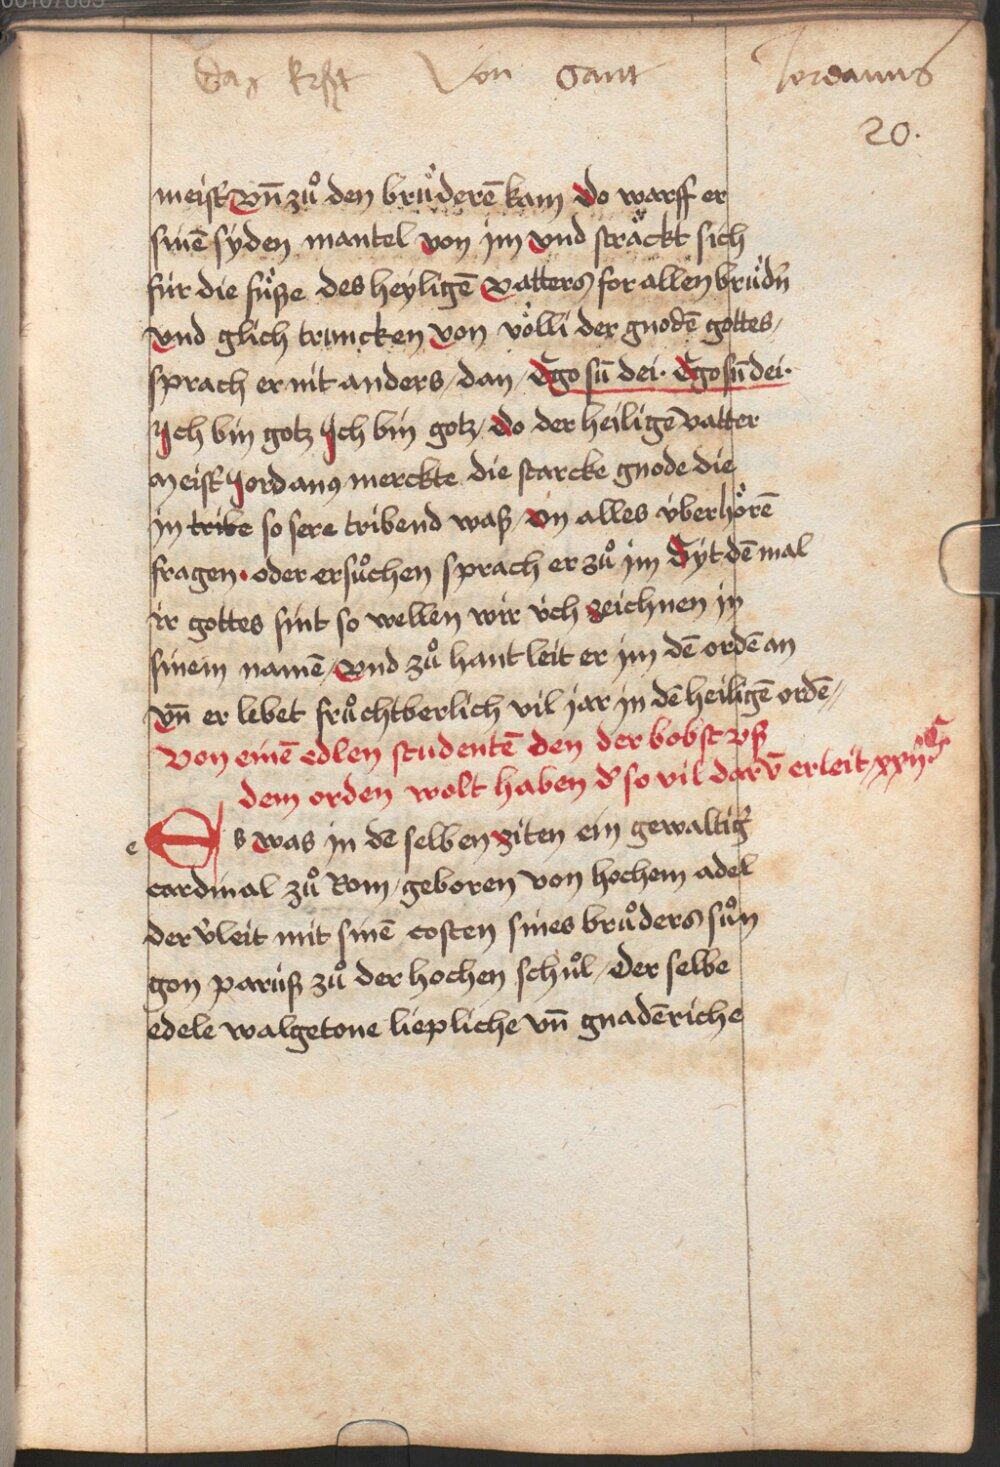 Daz Erst Von Sant Jordanus
20.
meisť vn̄ zuͦ den bruͤderē kam do warff er
sinē syden mantel von jm vnd sträckt sich
für die fuͤsse des heyligē vatters for allen bruͤdn̄
vnd glich truncken von völli der gnodē gottes/
sprach er nit anders/dan/Ego sū dei. Ego sū dei.
Ich bin gotz Ich bin gotz/do der heiligē vatter
meisť Jordanꝰ merckte die starcke gnode die
jn tribe so sere tribend waß/vn̄ alles v̈berhoͤrē
fragen. oder ersuͦchen sprach er zuͦ jm Syt dē mal
ir gottes sint so wellen wir v̈ch zeichnen jn
sinem namē/vnd zuͦ hant leit er jm dē ordē an
vn̄ er lebet fruͦchtberlich vil jar jn dē heiligē ordē//
Von einē edlen studentē den der bobst vß
dem orden wolt haben dˀ so vil darv̄ erleit/xxij
e
Es was jn dē selben ziten ein gewaltigˀ
cardinal zuͦ Rom/geboren von hochem adel
der vˀleit mit sinē costen sines bruͦders suͦn
gon pariß zuͦ der hochen schuͦl/der selbe
edele walgetone liepliche vn̄ gnadēriche